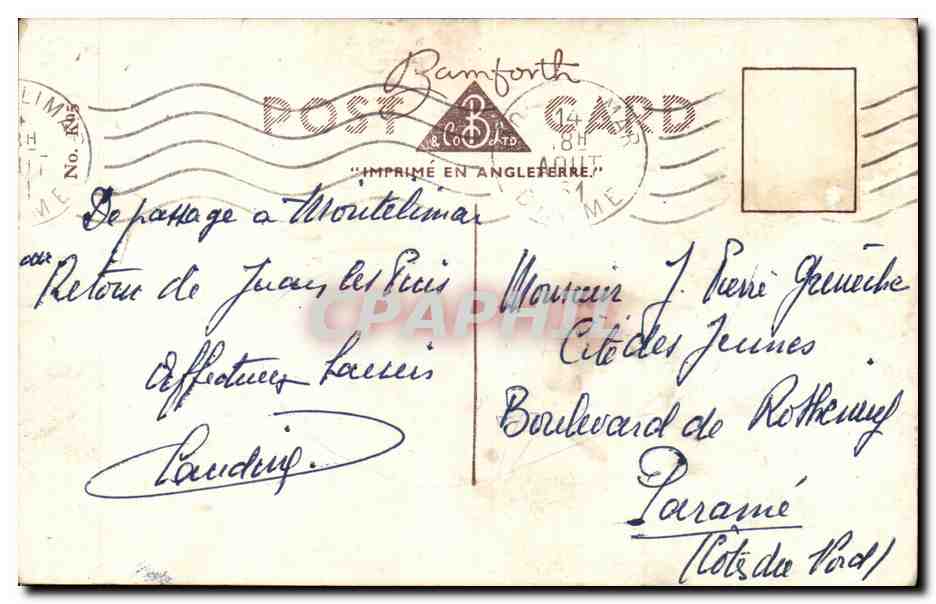 Bamforth
POST CARD
B
& Co LTD.
"IMPRIMÉ EN ANGLETERRE."
No. K95
14
18H
AOUT
De passage a Montelimar
Retour de Juan les Pins
Affectueux baisers
Monsieur J. Pierre
Cité des Jeunes
Boulevard de
Paramé
(Côtes du Nord)
CPAPHIL